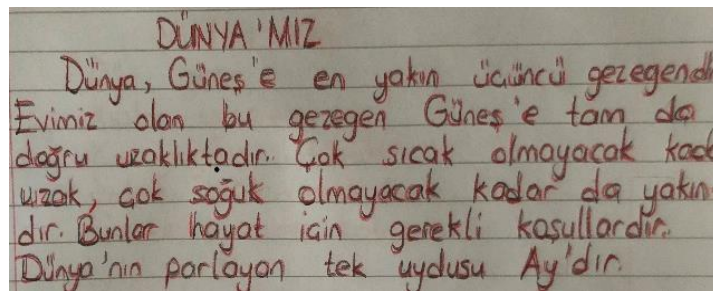 DÜNYA'MIZ
Dünya, Güneş'e en yakın üçüncü gezegendi
Evimiz olan bu gezegen Güneş'e tam da
doğru uzaklıktadır. Çok sıcak olmayacak kad
uzak, çok soğuk olmayacak kadar da yakın
dır. Bunlar hayat için gerekli koşullardır.
Dünya'nın parlayan tek uydusu Ay'dır.